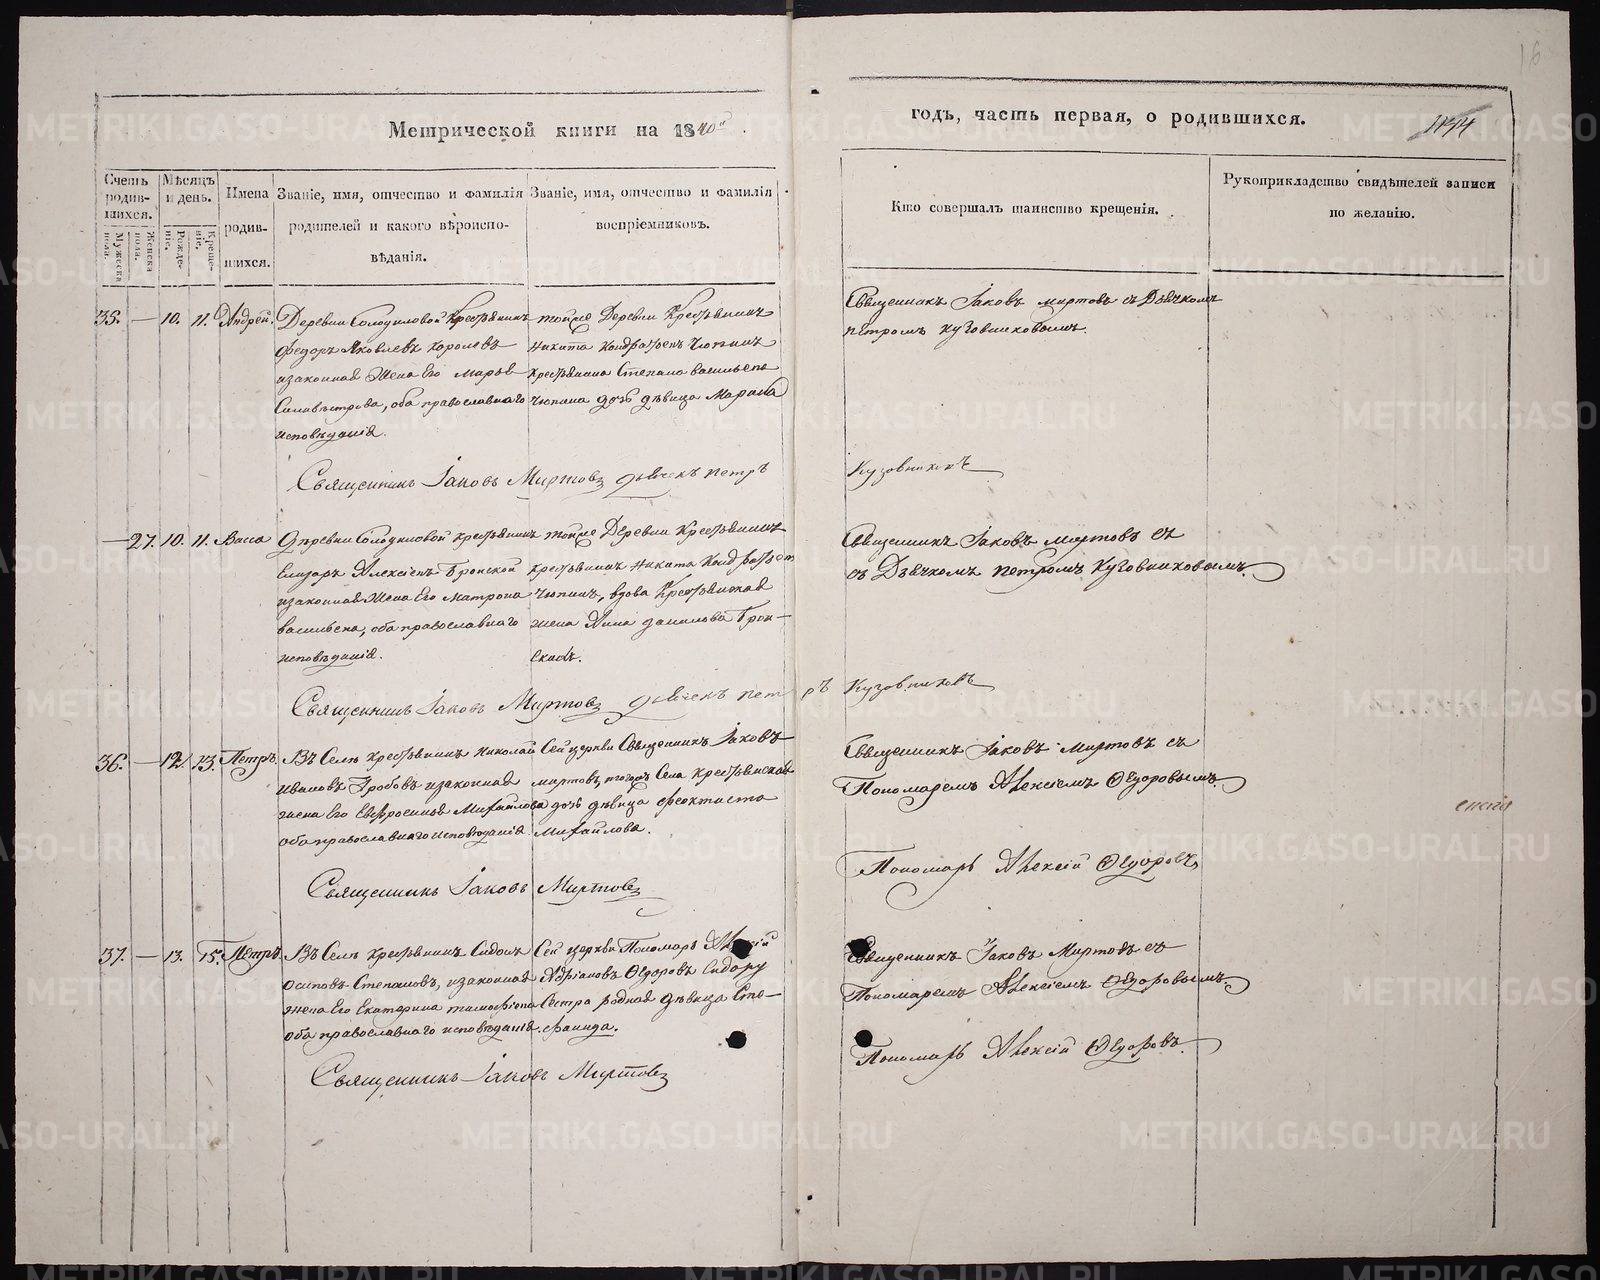 16
Метрической книги на 1840й
годъ, часть первая, о родившихся.
Счетъ родив-шихся.
Мужеска пола.
Женска пола.
Мѣсяцъ и день.
Рожде-ніе.
Креще-ніе.
Имена родив-шихся.
Званіе, имя, отчество и фамилія
родителей и какого вѣроиспо-
вѣданія.
Званіе, имя, отчество и фамилія
воспріемниковъ.
Кто совершалъ таинство крещенія.
Рукоприкладство свидѣтелей записи
по желанію.
35. — 10. 11. Андрей.
Деревни Солодиловой Крестьянинъ
Федоръ Яковлевъ Королевъ
изаконная Жена Его Марья
Силивѣстрова, оба православнаго
исповѣданія.
тойже Деревни Крестьянинъ
Никита Кондратьевъ Чюпинъ
крестьянина Степана васильева
Чюпина дочь дѣвица Марина
Священникъ Іаковъ Миртовъ съ Дьячкомъ
петромъ Кузовниковымъ.
Священникъ Іаковъ Миртовъ дьячекъ петръ Кузовниковъ
— 27. 10. 11. Васса
Деревни Солодиловой крестьянинъ
Елизаръ Алексѣевъ Бронской
изаконная Жена Его Матрона
васильева, оба православнаго
исповѣданія.
тойже Деревни Крестьянинъ
крестьянинъ Никита Кондратьевъ
Чюпинъ, вдова Крестьянская
жена Анна данилова Брон-
ская.
Священникъ Іаковъ Миртовъ съ
съ Дьячкомъ петромъ Кузовниковымъ.
Священникъ Іаковъ Миртовъ дьячекъ петръ Кузовниковъ
36. — 12. 13. Петръ.
Въ Селѣ крестьянинъ Николай
ивановъ изаконная
жена Его Евфросинья Михайлова
оба православнаго исповѣданія
Сей церкви Священникъ Іаковъ
миртовъ, тогожъ Села крестьянская
дочь дѣвица феоктиста
Михайлова.
Священникъ Іаковъ Миртовъ съ
Пономаремъ Алексіемъ Ѳедоровымъ.
Священникъ Іаковъ Миртовъ
Пономарь Алексій Ѳедоровъ
37. — 13. 15. Петръ.
Въ Селѣ крестьянинъ Сидоръ
Осиповъ Степановъ, изаконная
жена Его Екатерина тимофѣева
оба православнаго исповѣданія.
Сей церкви Пономарь Алексій
Адріановъ Ѳедоровъ Сидору
Сестра родная дѣвица Сте-
фанида.
Священникъ Іаковъ Миртовъ съ
Пономаремъ Алексіемъ Ѳедоровымъ.
Священникъ Іаковъ Миртовъ
Пономарь Алексій Ѳедоровъ
METRIKI.GASO-URAL.RU